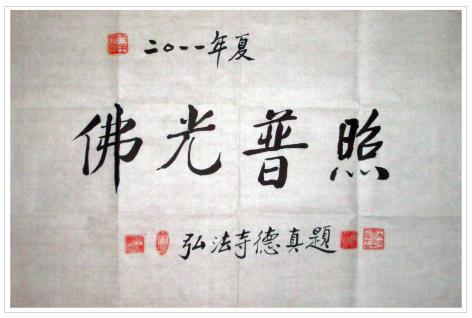 二〇一一年夏
佛光普照
弘法寺德真題